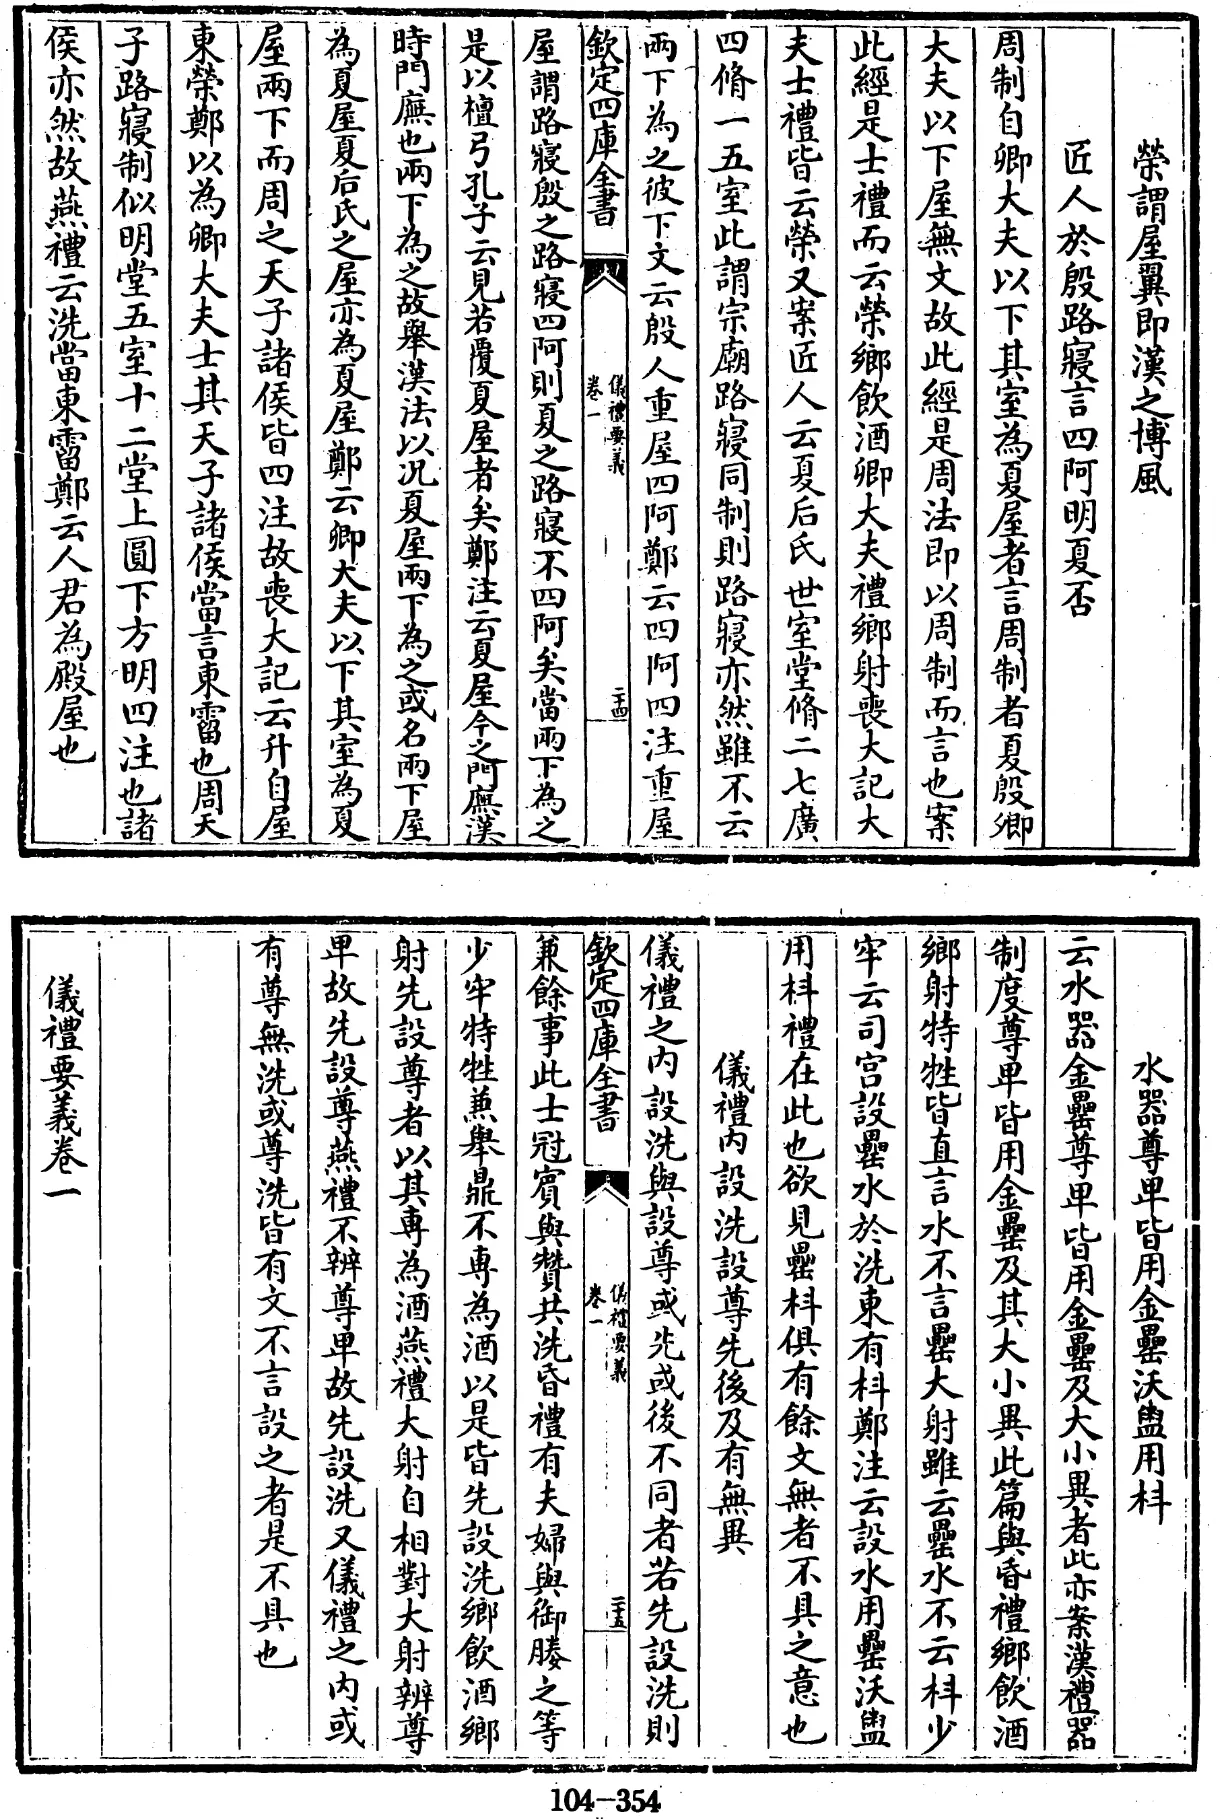 榮謂屋翼即漢之博風
匠人於殷路寢言四阿明夏否
周制自卿大夫以下其室為夏屋者言周制者夏殷卿
大夫以下屋無文故此經是周法即以周制而言也案
此經是士禮而云榮鄉飲酒卿大夫禮鄉射喪大記大
夫士禮皆云榮又案匠人云夏后氏世室堂脩二七廣
四脩一五室此謂宗廟路寢同制則路寢亦然雖不云
兩下為之彼下文云殷人重屋四阿鄭云四阿四注重屋
欽定四庫全書
儀禮要義
卷一
二十四
屋謂路寢殷之路寢四阿則夏之路寢不四阿矣當兩下為之
是以檀弓孔子云見若覆夏屋者矣鄭注云夏屋今之門廡漢
時門廡也兩下為之故舉漢法以况夏屋兩下為之或名兩下屋
為夏屋夏后氏之屋亦為夏屋鄭云卿大夫以下其室為夏
屋兩下而周之天子諸侯皆四注故喪大記云升自屋
東榮鄭以為卿大夫士其天子諸侯當言東霤也周天
子路寢制似明堂五室十二堂上圓下方明四注也諸
侯亦然故燕禮云洗當東霤鄭云人君為殿屋也
水器尊卑皆用金罍沃盥用枓
云水器金罍尊卑皆用金罍及大小異者此亦案漢禮器
制度尊卑皆用金罍及其大小異此篇與昏禮鄉飲酒
鄉射特牲皆直言水不言罍大射雖云罍水不云枓少
牢云司宮設罍水於洗東有枓鄭注云設水用罍沃盥
用枓禮在此也欲見罍枓俱有餘文無者不具之意也
儀禮內設洗設尊先後及有無異
儀禮之内設洗與設尊或先或後不同者若先設洗則
欽定四庫全書
儀禮要義
卷一
二十五
兼餘事此士冠賓與贊共洗昏禮有夫婦與御媵之等
少牢特牲兼舉鼎不專為酒以是皆先設洗鄉飲酒鄉
射先設尊者以其專為酒燕禮大射自相對大射辨尊
卑故先設尊燕禮不辨尊卑故先設洗又儀禮之内或
有尊無洗或尊洗皆有文不言設之者是不具也
儀禮要義卷一
104-354